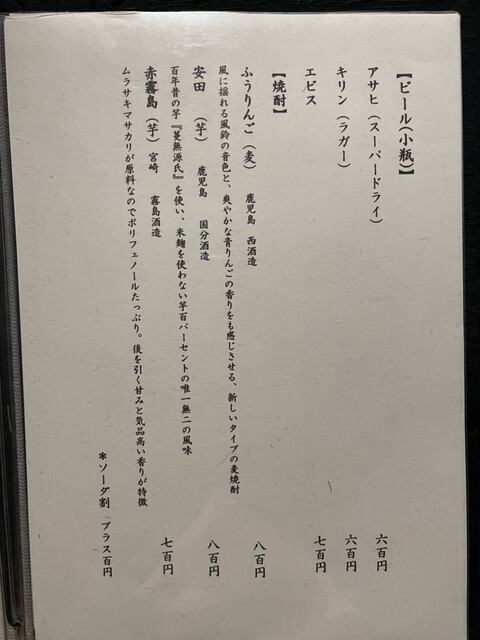 【ビール(小瓶)】
アサヒ（スーパードライ） 六百円
キリン（ラガー） 六百円
エビス 七百円
【焼酎】
ふうりんご（麦） 鹿児島 西酒造 八百円
風に揺れる風鈴の音色と、爽やかな青りんごの香りをも感じさせる、新しいタイプの麦焼酎
安田（芋） 鹿児島 国分酒造 八百円
百年昔の芋『蔓無源氏』を使い、米麹を使わない芋百パーセントの唯一無二の風味
赤霧島（芋）宮崎 霧島酒造 七百円
ムラサキマサカリが原料なのでポリフェノールたっぷり。後を引く甘みと気品高い香りが特徴
＊ソーダ割 プラス百円